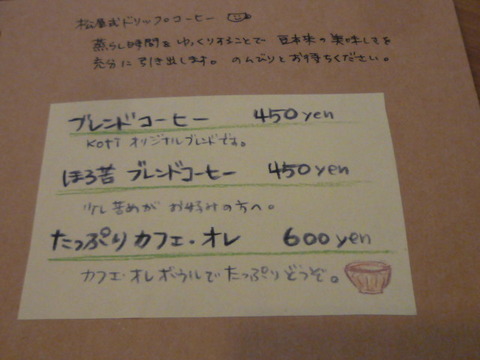 松屋式ドリップコーヒー
蒸らし時間をゆっくりすることで 豆本来の美味しさを
充分に引き出します。 のんびりとお待ちください。
ブレンドコーヒー 450yen
オリジナルブレンドです。
ほろ苦 ブレンドコーヒー 450yen
少し苦めが お好みの方へ。
たっぷりカフェ・オレ 600yen
カフェ・オレボウルでたっぷりどうぞ。